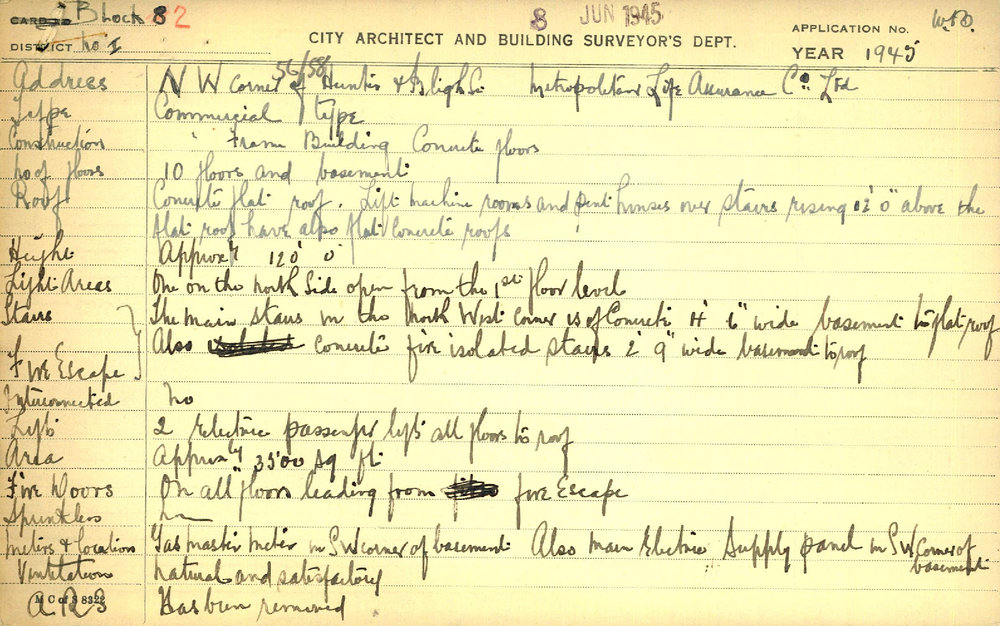 Block 8 2
CARD
8 JUN 1945
APPLICATION NO. W.D.
DISTRICT No I
CITY ARCHITECT AND BUILDING SURVEYOR'S DEPT.
YEAR 1945
56/58
Address N W Corner of Hunter & Bligh St Metropolitan Life Assurance Co Ltd
Type Commercial type
Construction Frame Building Concrete floors
No of floors 10 floors and basement
Roof Concrete flat roof. Lift machine rooms and pent houses over stairs rising 12' 0" above the
flat roof have also flat concrete roofs
Height Approx 120' 0"
Light Areas One on the North Side open from the 1st floor level
Stairs The main stairs in the North West Corner is of Concrete 4' 6" wide basement to flat roof
Also concrete fire isolated stairs 2' 9" wide basement to roof
Fire Escape
Interconnected No
Lifts 2 Electric passenger lifts all floors to roof
Area Approx 3500 sq ft
Fire Doors On all floors leading from fire Escape
Sprinklers no
Meters & location Gas master meter in S W corner of basement Also main Electric Supply panel in S W Corner of
basement
Ventilation natural and satisfactory
M C of S 8322
A R S Has been removed